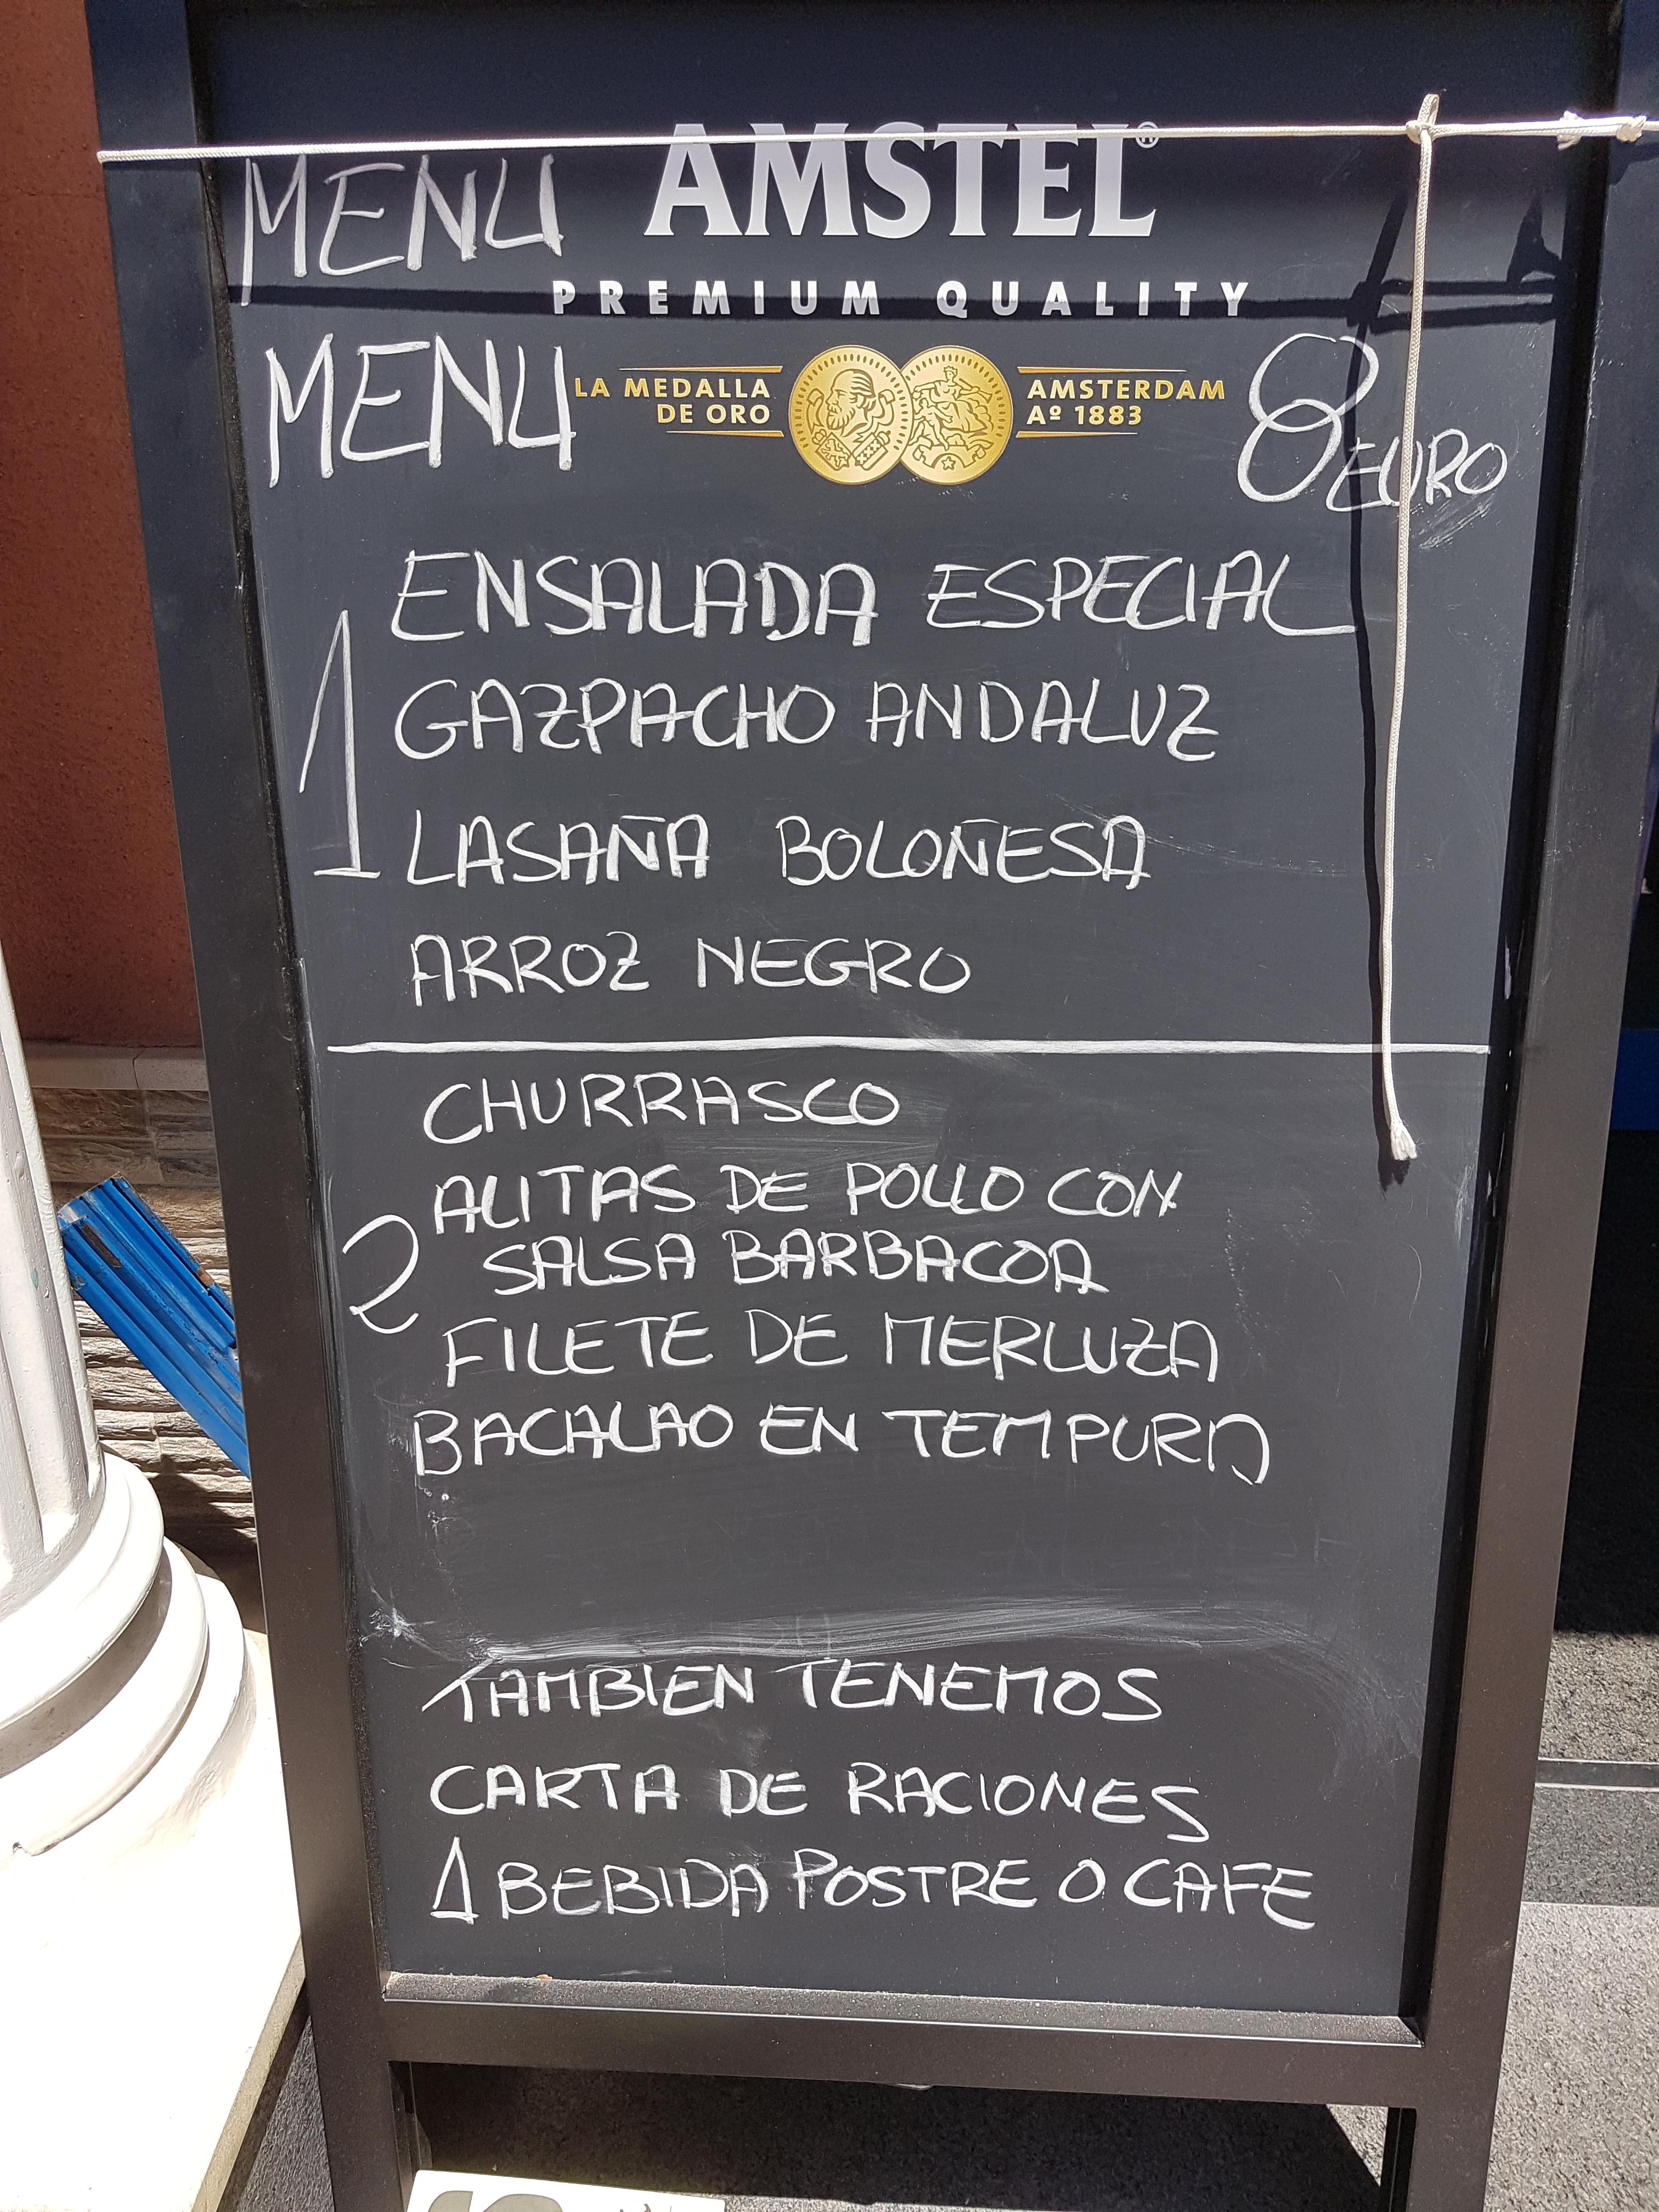 AMSTEL®
MENU
PREMIUM QUALITY
MENU
LA MEDALLA
DE ORO
AMSTERDAM
Aº 1883
8 EURO
1
ENSALADA ESPECIAL
GAZPACHO ANDALUZ
LASAÑA BOLOÑESA
ARROZ NEGRO
2
CHURRASCO
ALITAS DE POLLO CON
SALSA BARBACOA
FILETE DE MERLUZA
BACALAO EN TEMPURA
TAMBIEN TENEMOS
CARTA DE RACIONES
1 BEBIDA POSTRE O CAFE